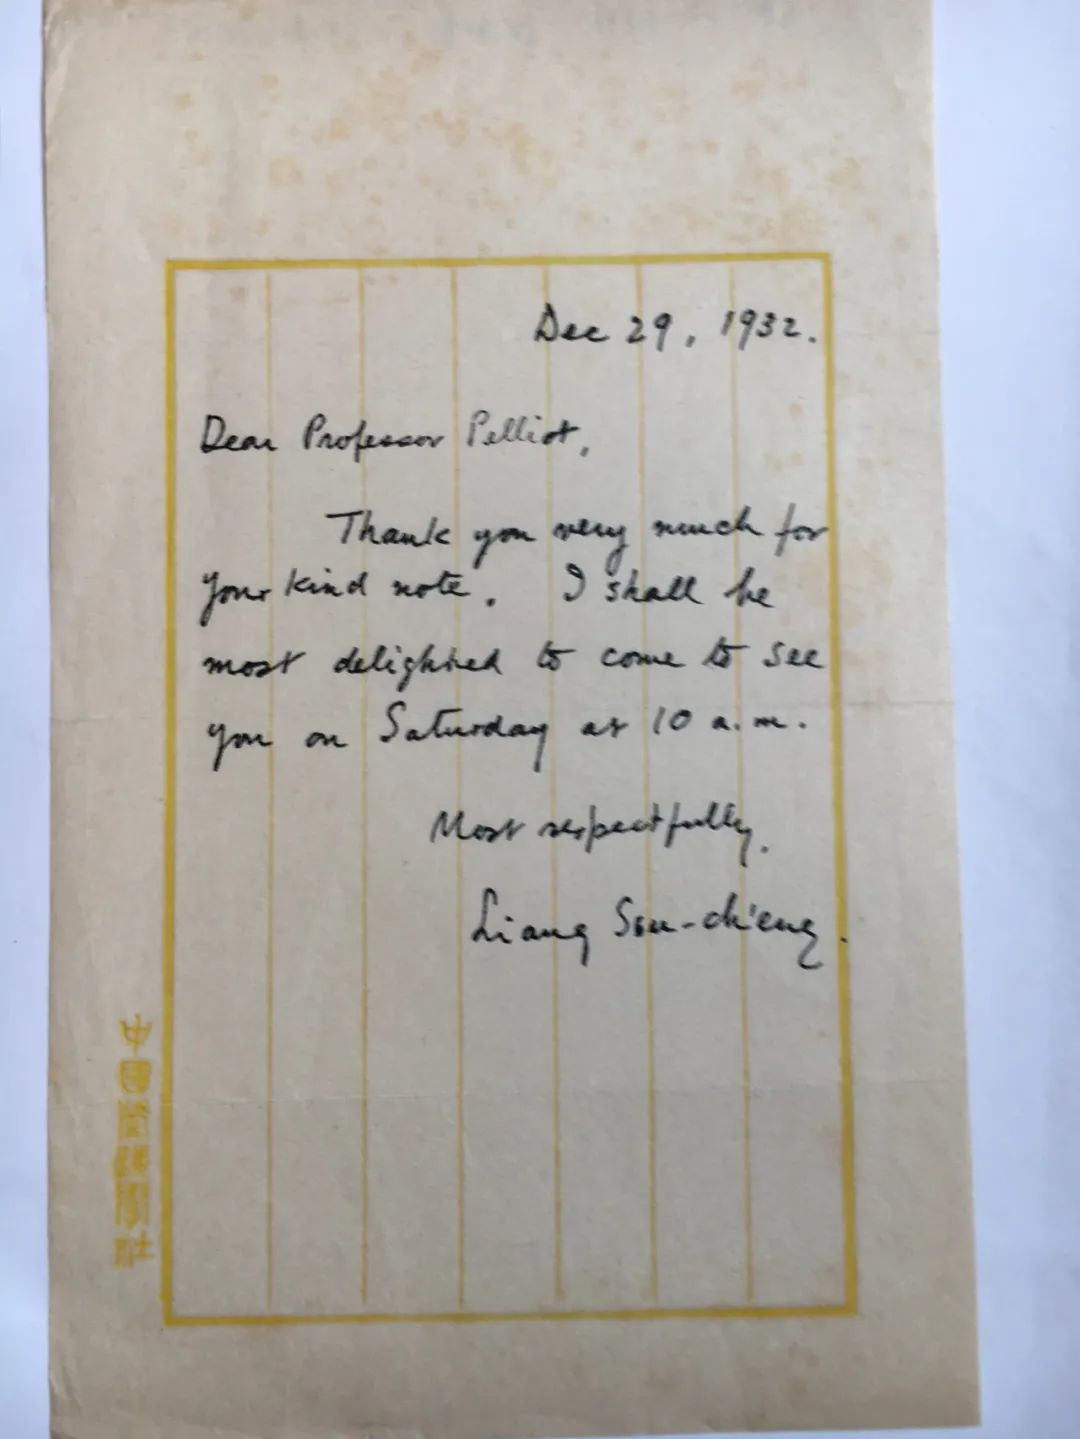 Dec 29, 1932.
Dear Professor Pelliot,
Thank you very much for
your kind note. I shall be
most delighted to come to see
you on Saturday at 10 a.m.
Most respectfully,
Liang Ssu-ch'eng.
中國營造學社